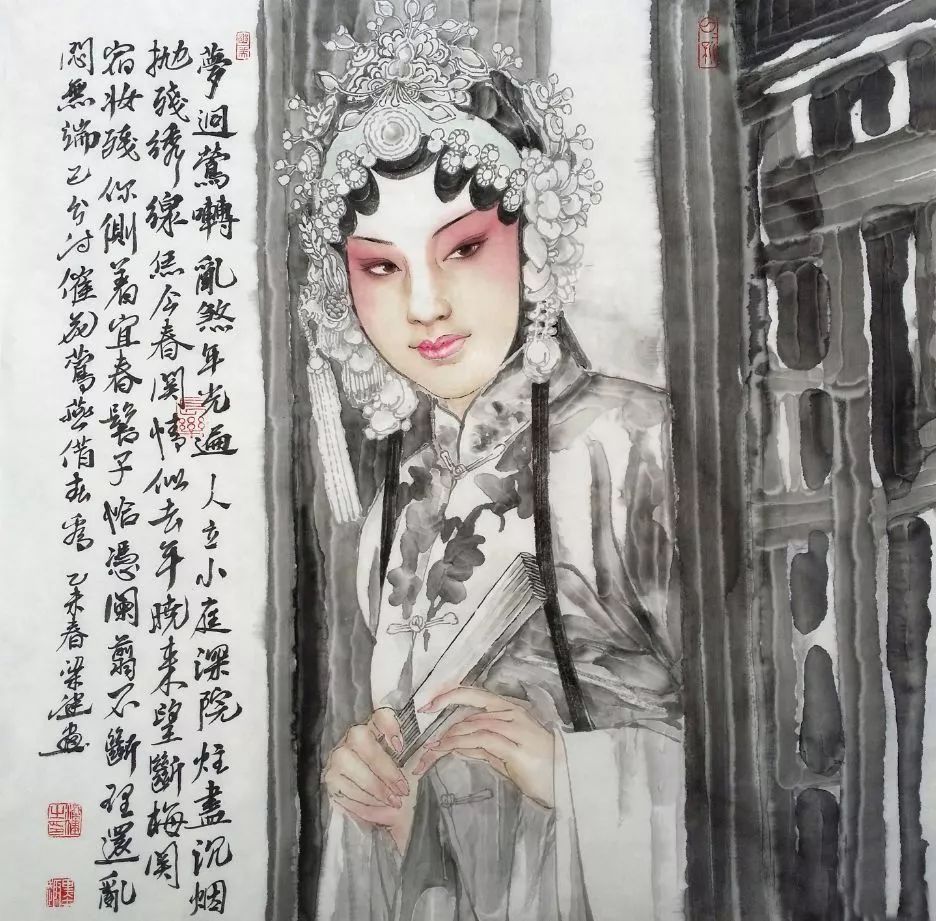 夢迴鶯囀亂煞年光遍人立小庭深院炷盡沉烟
抛殘绣線恁今春関情似去年曉来望斷梅関
宿妆殘你側着宜春髻子恰憑闌翦不斷理還亂
悶無端已分付催花鶯燕借春看 乙未春梁建画
長樂